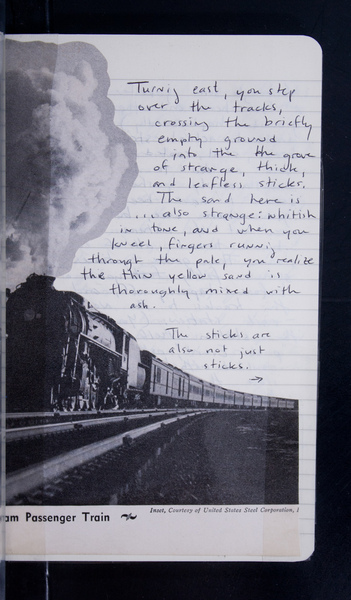 Turning east, you step
over the tracks,
crossing the briefly
empty ground
into the the grove
of strange, thick,
and leafless sticks.
The sand here is
... also strange: whitish
in tone, and when you
kneel, fingers running
through the pale, you realize
the thin yellow sand is
thoroughly mixed with
ash.
The sticks are
also not just
sticks.
→
Inset, Courtesy of United States Steel Corporation, I
am Passenger Train